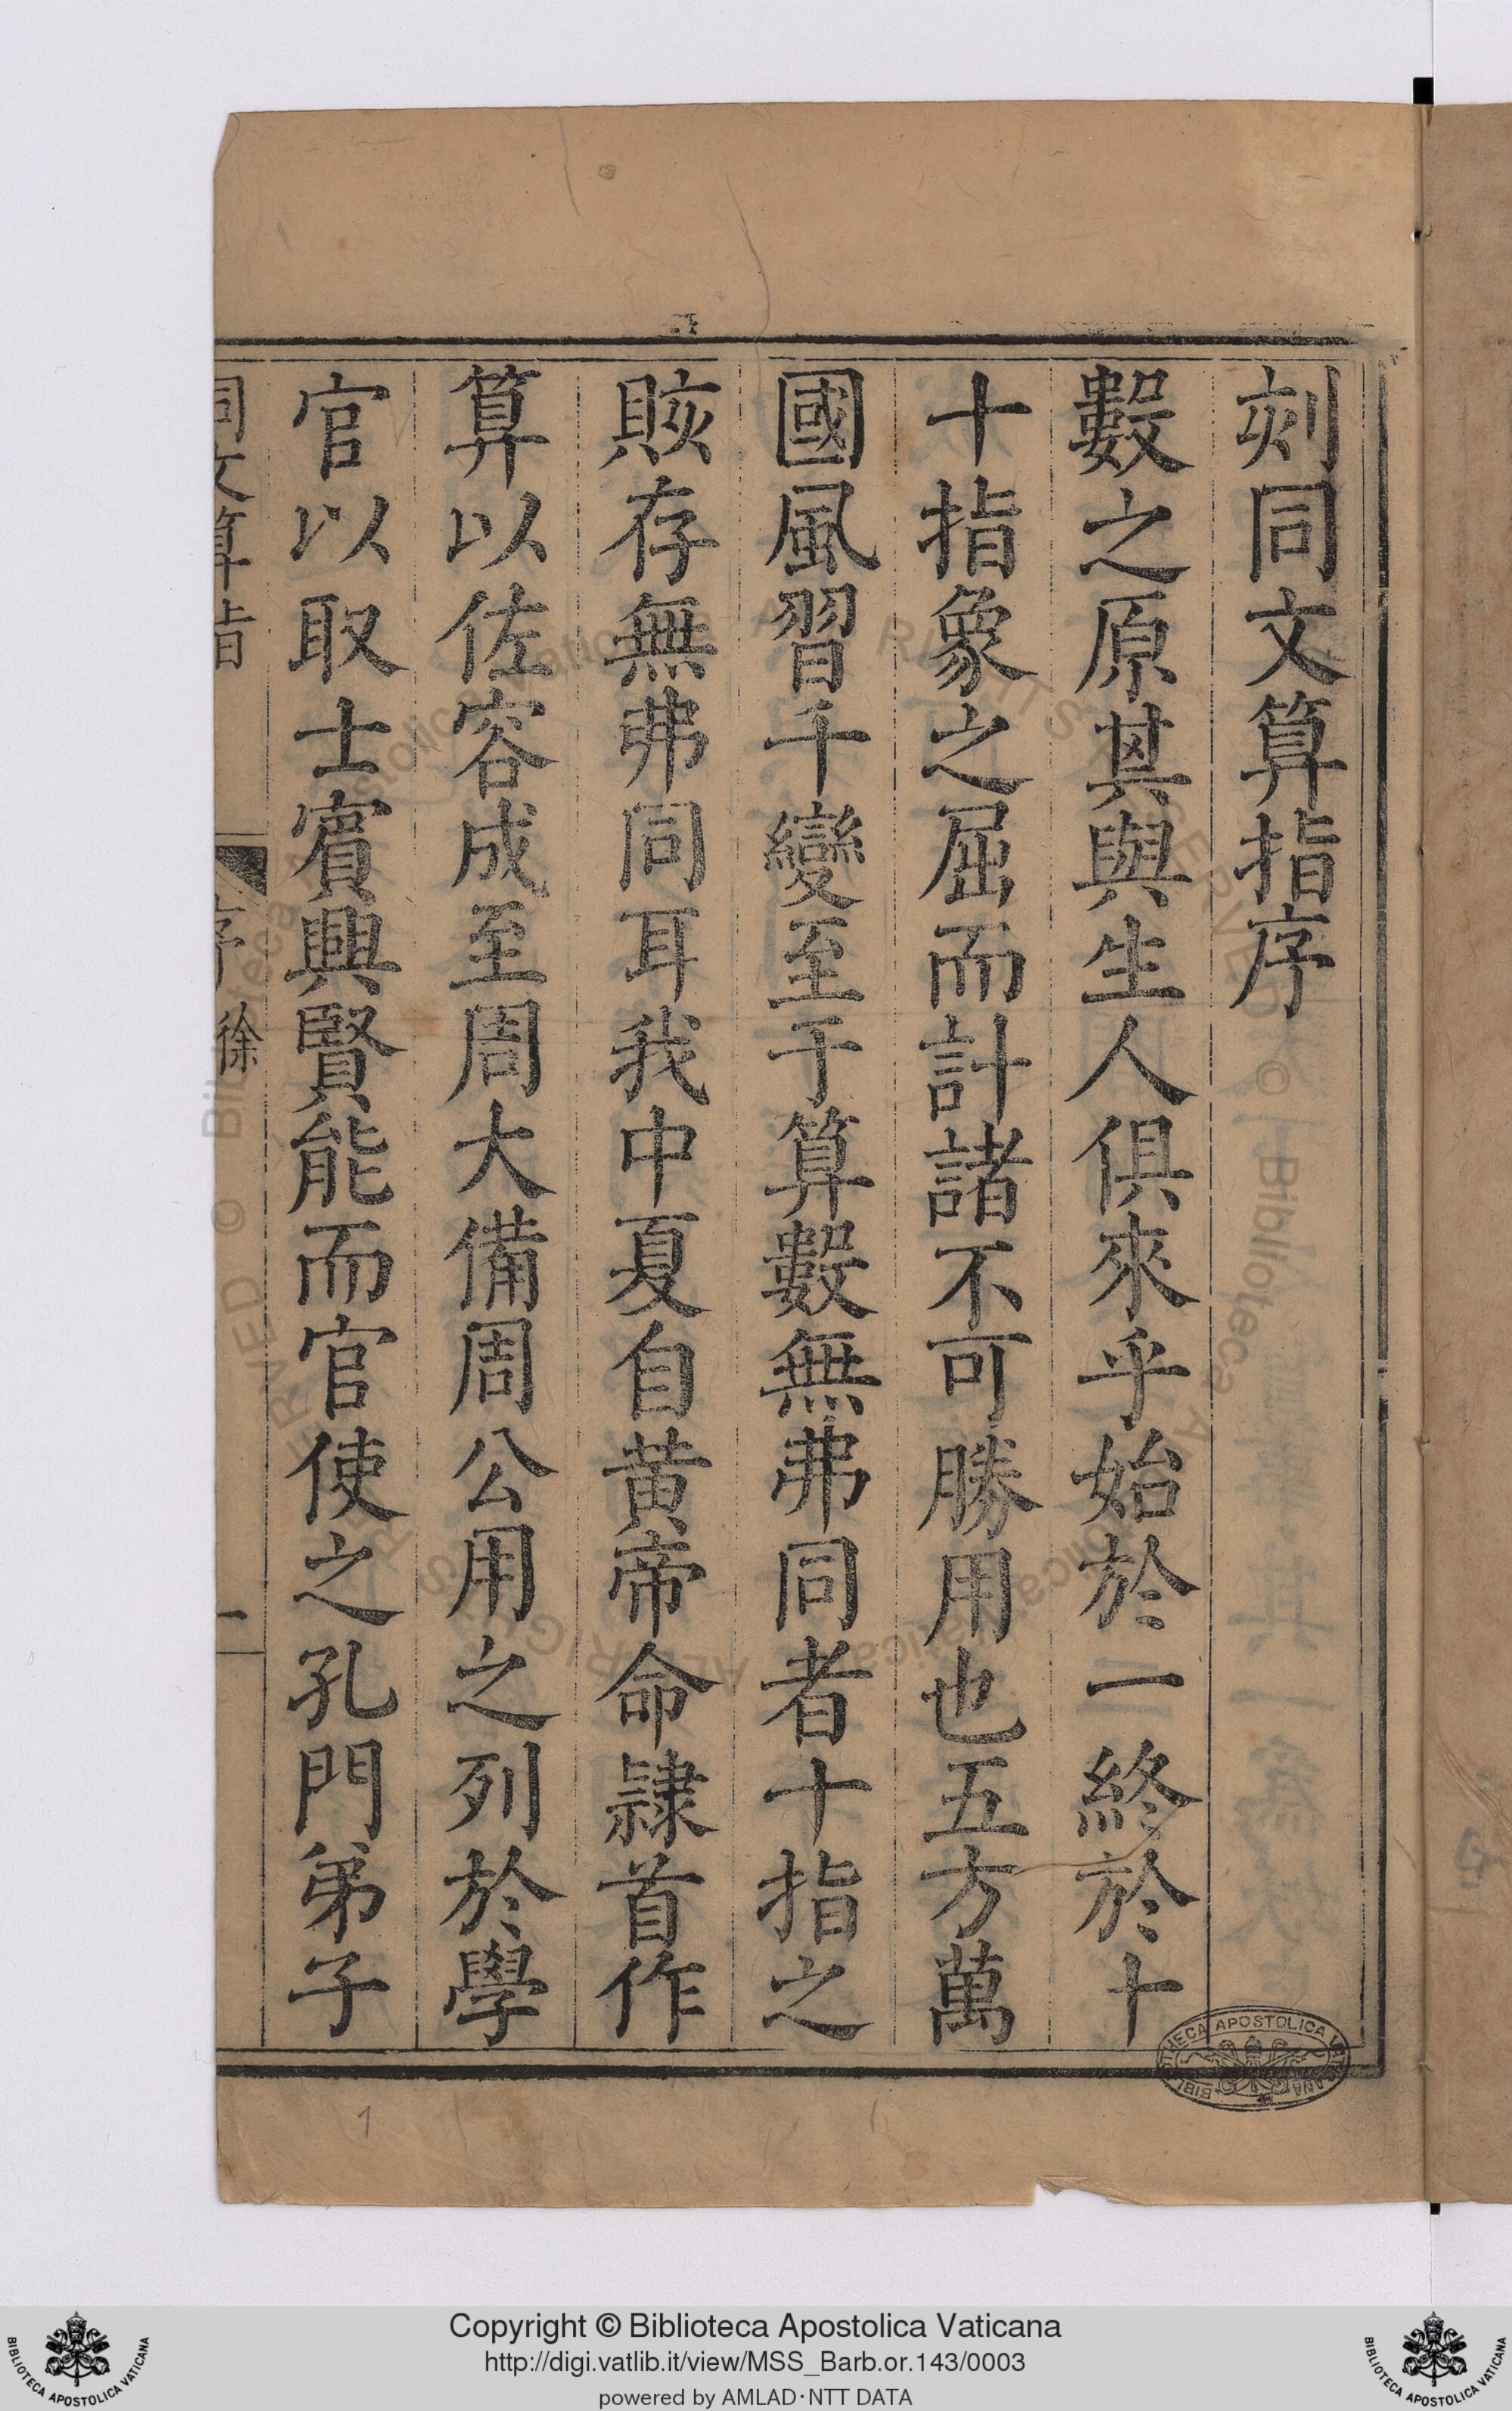 刻同文算指序
數之原其與生人俱來乎始於一終於十
十指象之屈而計諸不可勝用也五方萬
國風習千變至于算數無弗同者十指之
賅存無弗同耳我中夏自黃帝命隷首作
算以佐容成至周大備周公用之列於學
官以取士賓興賢能而官使之孔門弟子
同文算指
序 徐
一
1
BIBLIOTHECA APOSTOLICA VATICANA
Copyright © Biblioteca Apostolica Vaticana
http://digi.vatlib.it/view/MSS_Barb.or.143/0003
powered by AMLAD·NTT DATA
BIBLIOTECA APOSTOLICA VATICANA
BIBLIOTECA APOSTOLICA VATICANA